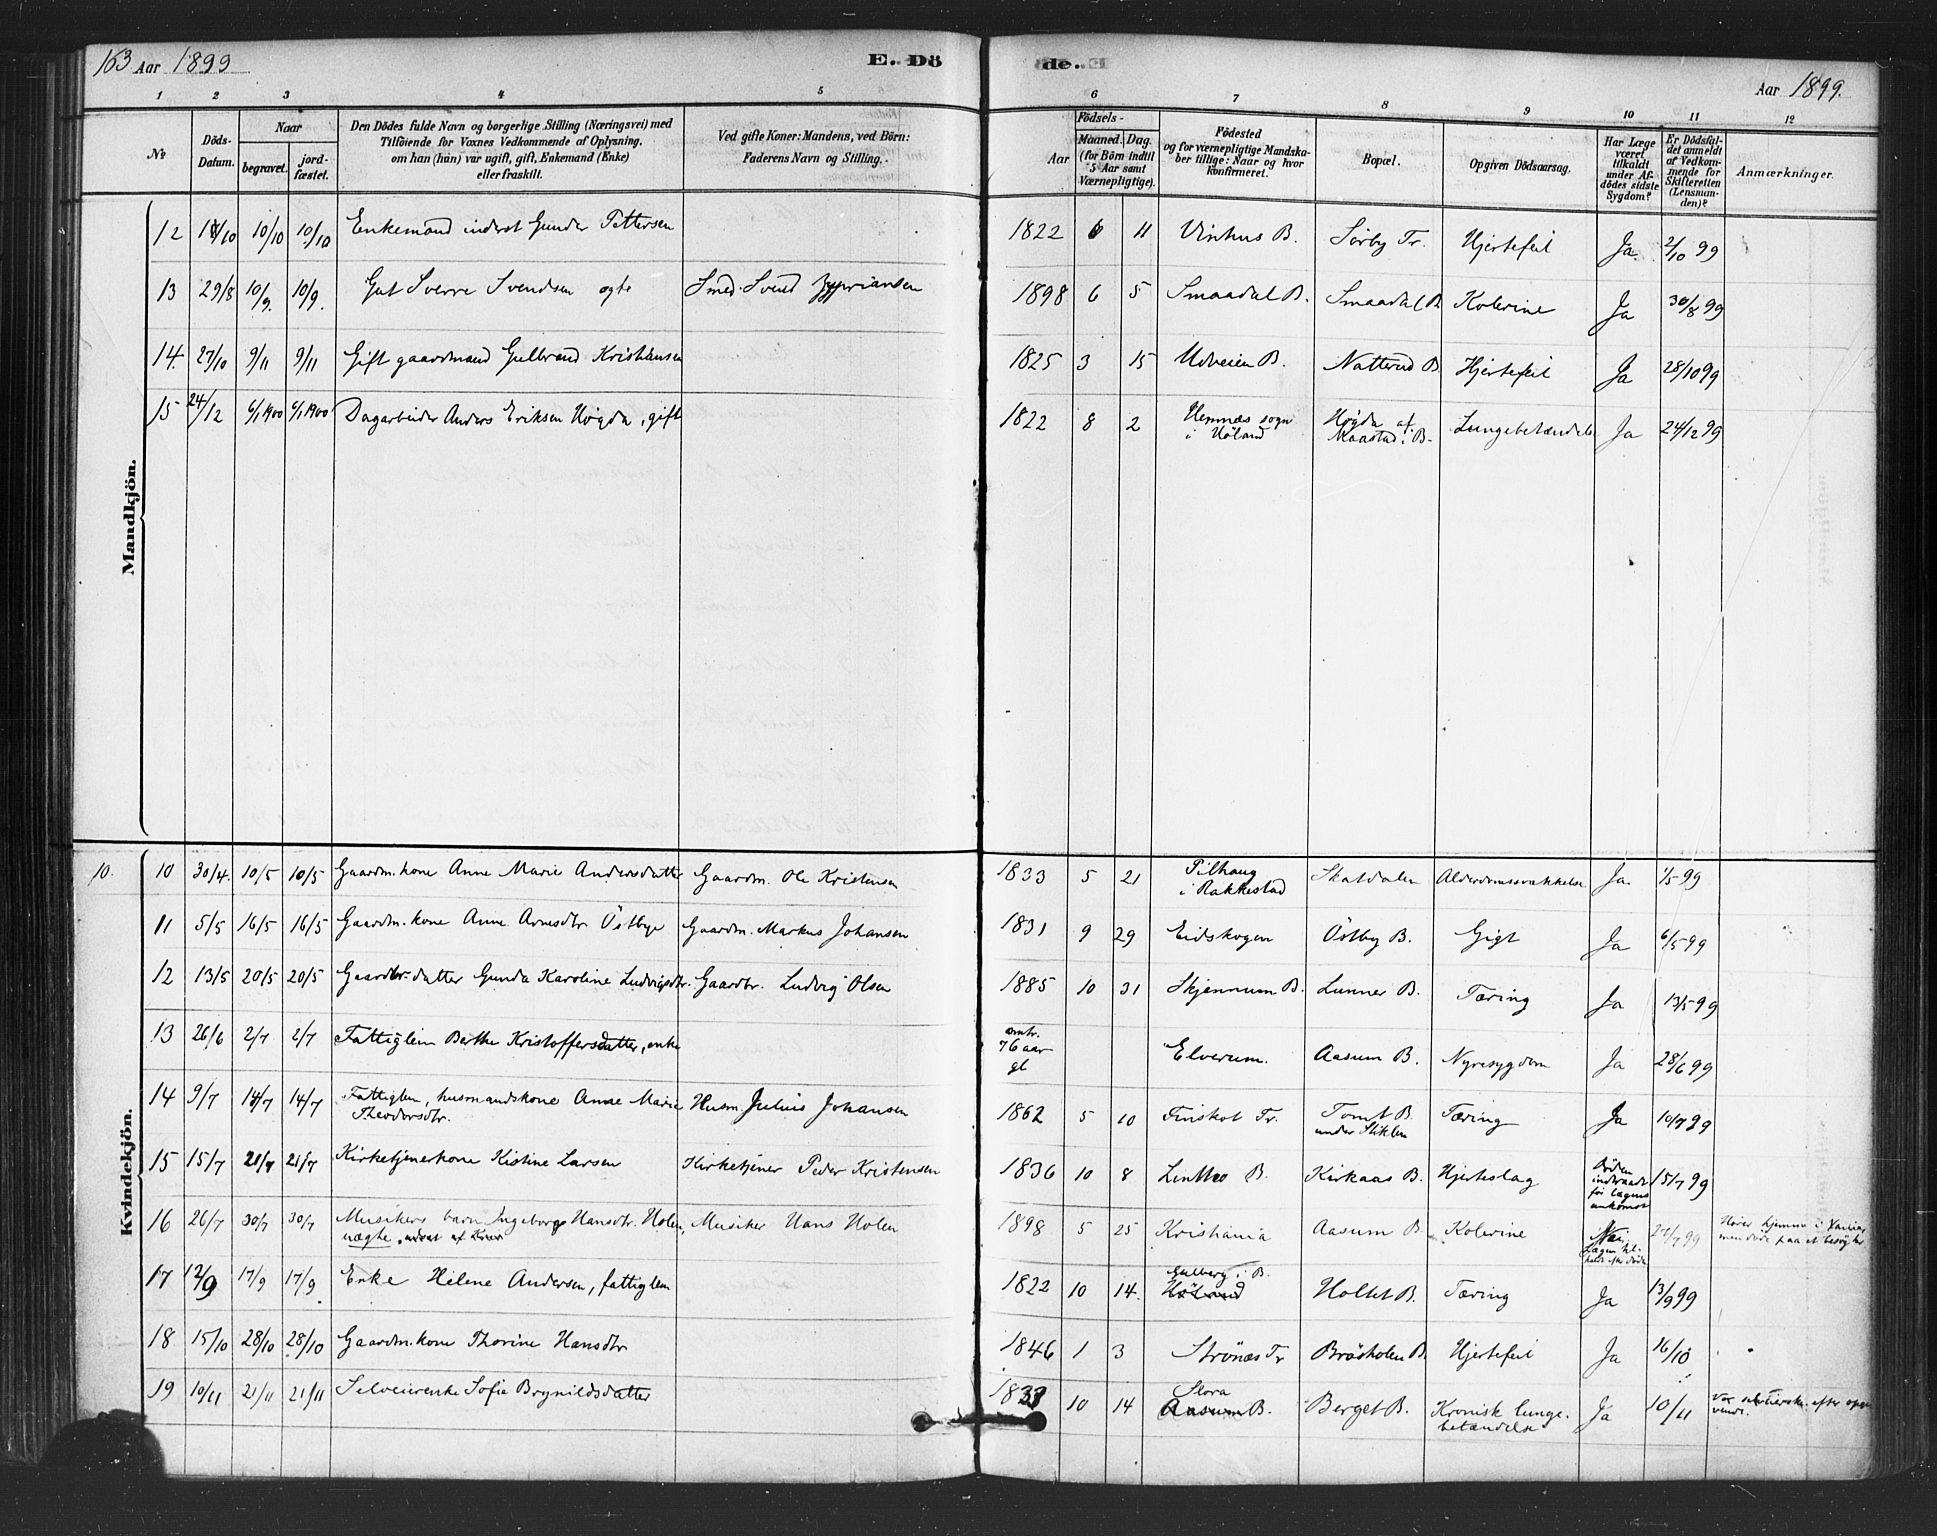 163 Aar 1899
E. Dö
de.
Aar 1899.
1 2 3 4 5 6 7 8 9 10 11 12
No
Döds-Datum.
Naar
begravet. jordfæstet.
Den Dödes fulde Navn og borgerlige Stilling (Næringsvei) med Tilföiende for Voxnes Vedkommende af Oplysning, om han (hun) var ugift, gift, Enkemand (Enke) eller fraskilt.
Ved gifte Koner: Mandens, ved Börn: Faderens Navn og Stilling.
Födsels-
Aar Maaned. Dag.
(for Börn indtil 5 Aar samt Værnepligtige).
Födested og for værnepligtige Mandskaber tillige: Naar og hvor konfirmeret.
Bopæl.
Opgiven Dödsaarsag.
Har Læge været tilkaldt under Afdödes sidste Sygdom?
Er Dödsfaldet anmeldt af Vedkommende for Skifteretten (Lensmanden)?
Anmærkninger.
Mandkjön.
12 1/10 10/10 10/10 Enkemand inderst Gunder Pettersen 1822 6 11 Vinhus B. Sörby Tr. Hjertefeil Ja 2/10 99
13 29/8 10/9 10/9. Gut Sverre Svendsen ægte Smed Svend Zypriansen 1898 6 5 Smaadal B. Smaadal B Kolerine Ja 30/8 99
14. 27/10 9/11 9/11 Gift gaardmand Gulbrand Kristiansen 1825 3 15 Udveien B. Natterud B Hjertefeil Ja 28/10 99
15 24/12 6/1 1900 6/1 1900 Dagarbeider Anders Eriksen Høgda, gift 1822 8 2 Hemnæs sogn i Höland Høgda af Maastad B. Lungebetændelse Ja 24/12 99
Kvindekjön.
10. 10 30/4. 10/5 10/5 Gaardm.kone Anne Marie Andersdatter Gaardm. Ole Kristensen 1833 5 21 Pilhaug i Rakkestad Skatdalen Alderdomssvækkelse Ja 1/5 99
11 5/5 16/5 16/5 Gaardm.kone Anne Arnesdtr Östbye Gaardm. Markus Johansen 1831 9 29 Eidskogen Östby B. Gigt Ja 6/5 99
12 13/5 20/5 20/5 Gaardbr.datter Gunda Karoline Ludvigsdtr. Gaardbr. Ludvig Olsen 1885 10 31 Skjennum B. Lunner B. Tæring Ja 13/5 99
13 26/6 2/7 2/7 Fattiglem Berthe Kristoffersdatter, enke omtr. 76 aar gl Elverum. Aasum B. Nyresygdom Ja 28/6 99
14 9/7 14/7 14/7 Fattiglem, husmandskone Anne Marie Theodorsdtr. Husm Julius Johansen 1862 5 10 Finskot Tr. Tomt B. under Stiklen Tæring Ja 10/7 99
15 15/7 21/7 21/7 Kirketjenerkone Kistine Larsen Kirketjener Peder Kristensen 1836 10 8 Linttho B. Kirkaas B. Hjerteslag Döden indtraadt før lægens ankomst 15/7 99
16 26/7 30/7 30/7 Musikers barn Ingeborg Hansdtr. Holen, uægte Musiker Hans Holen 1898 5 25 Kristiania Aasum B. Kolerine Nei. Lægen tilkaldt efter döde 27/7 99 Hører hjemme i mendöde paa et besög her
17 12/9 17/9 17/9 Enke Helene Andersen, fattiglem 1822 10 14. Gulberg i B. Höland Holtet B. Tæring Ja 13/9 99
18 15/10 28/10 28/10 Gaardm.kone Thorine Hansdtr 1846 1 3 Strönæs Tr Bråtholen B. Hjertefeil Ja 16/10
19 10/11 21/11 21/11 Selveierenke Sofie Brynildsdatter 1833 10 14 Slora Aasum B. Berget B. Kronisk lungebetændelse Ja 10/11 Var selveierske efter